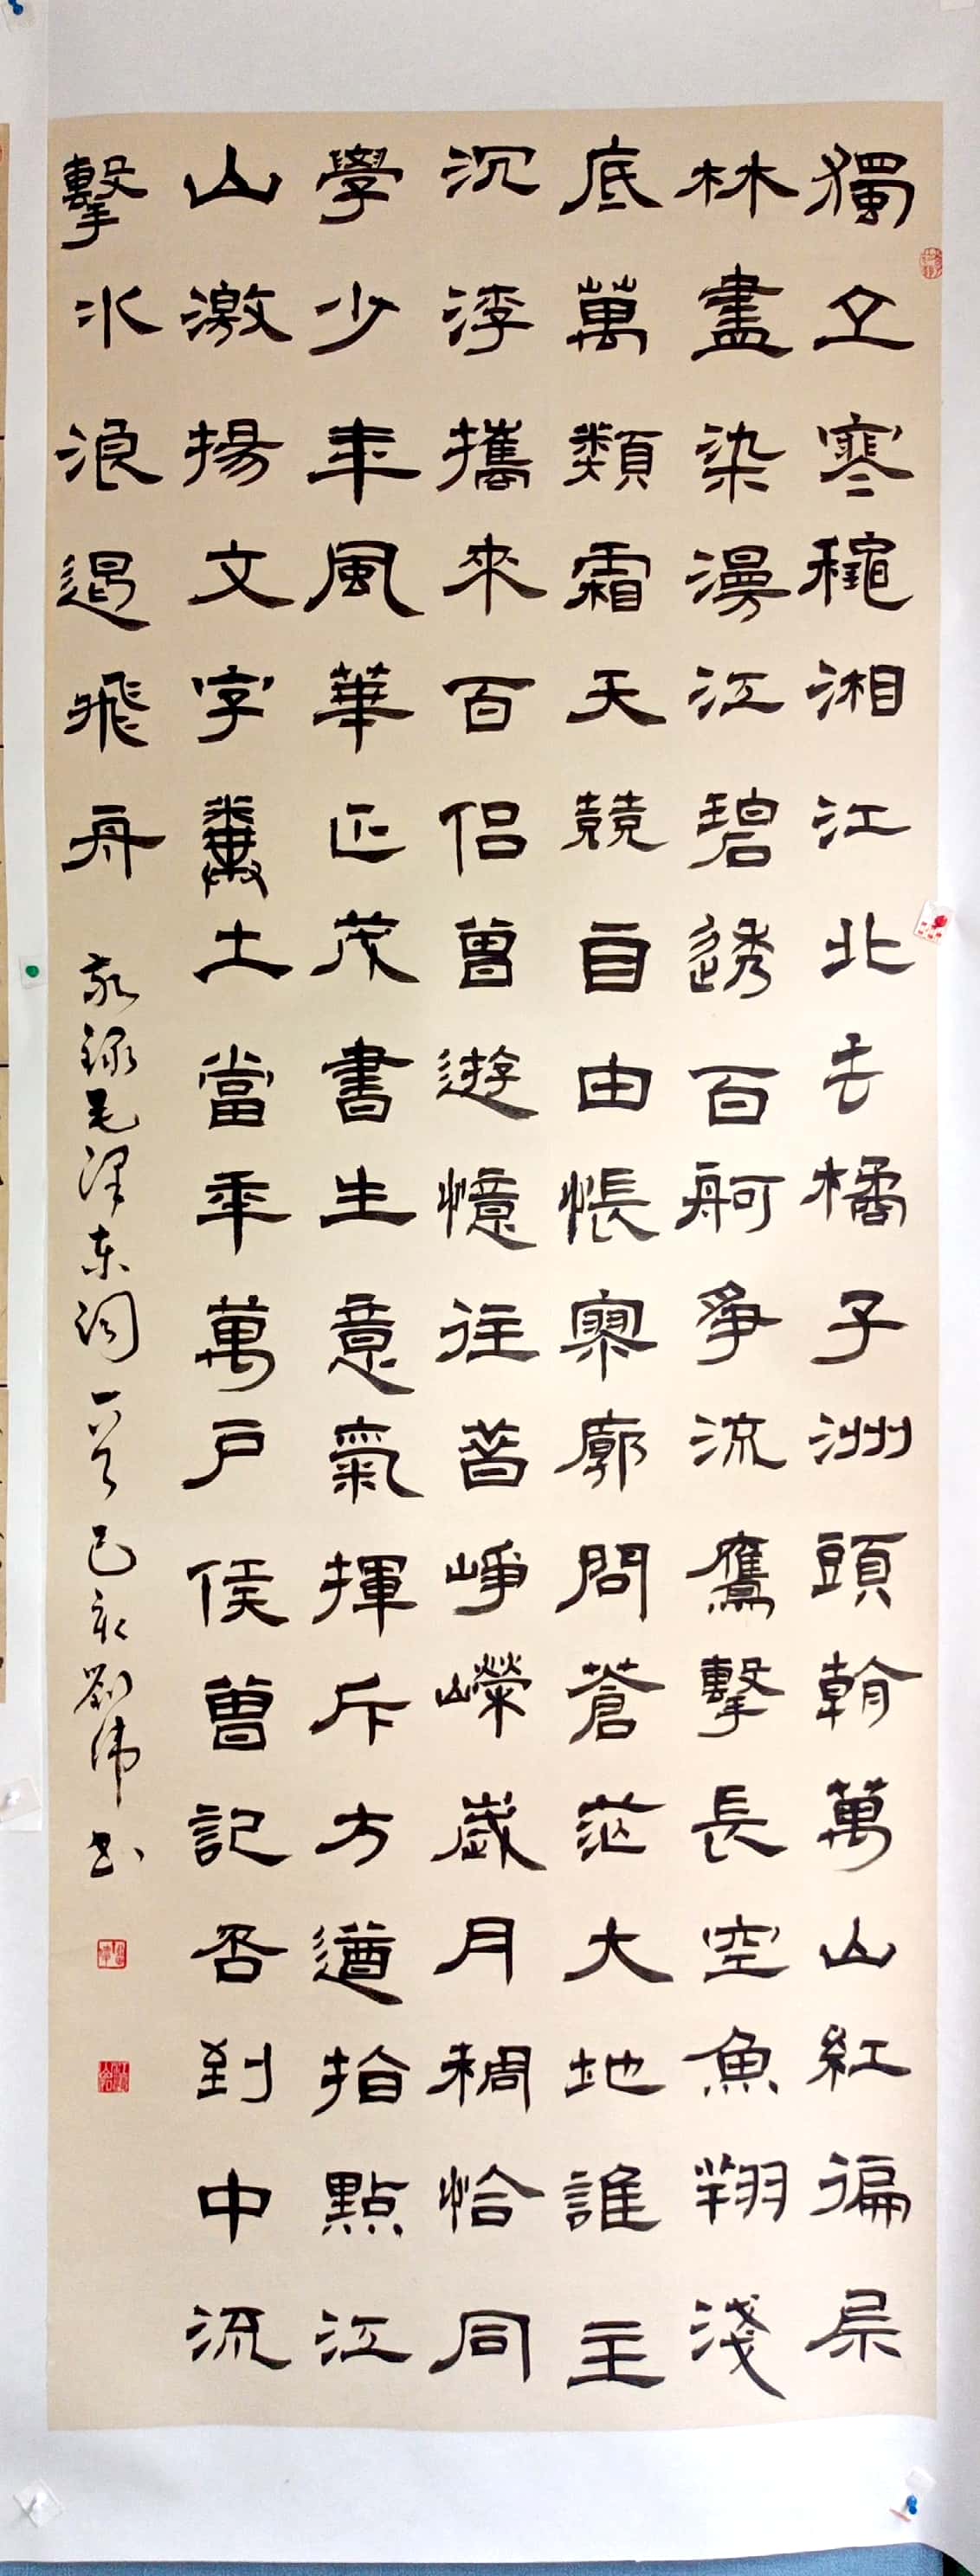 獨立寒穐湘江北去橘子洲頭看萬山紅徧层
林盡染漫江碧透百舸爭流鷹擊長空魚翔淺
底萬類霜天競自由悵寥廓問蒼茫大地誰主
沉浮攜來百侶曾遊憶往昔崢嶸歲月稠恰同
學少年風華正茂書生意氣揮斥方遒指點江
山激揚文字糞土當年萬戶侯曾記否到中流
擊水浪遏飛舟 敬録毛泽东词一首 己亥劉伟书